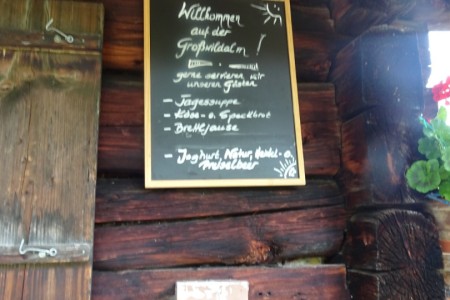 Willkommen
auf der
Großwildalm!
gerne servieren wir
unseren Gästen
- Tagessuppe
- Käse- o. Speckbrot
- Brettljause
- Joghurt, Natur, Heidel- o.
Preiselbeer